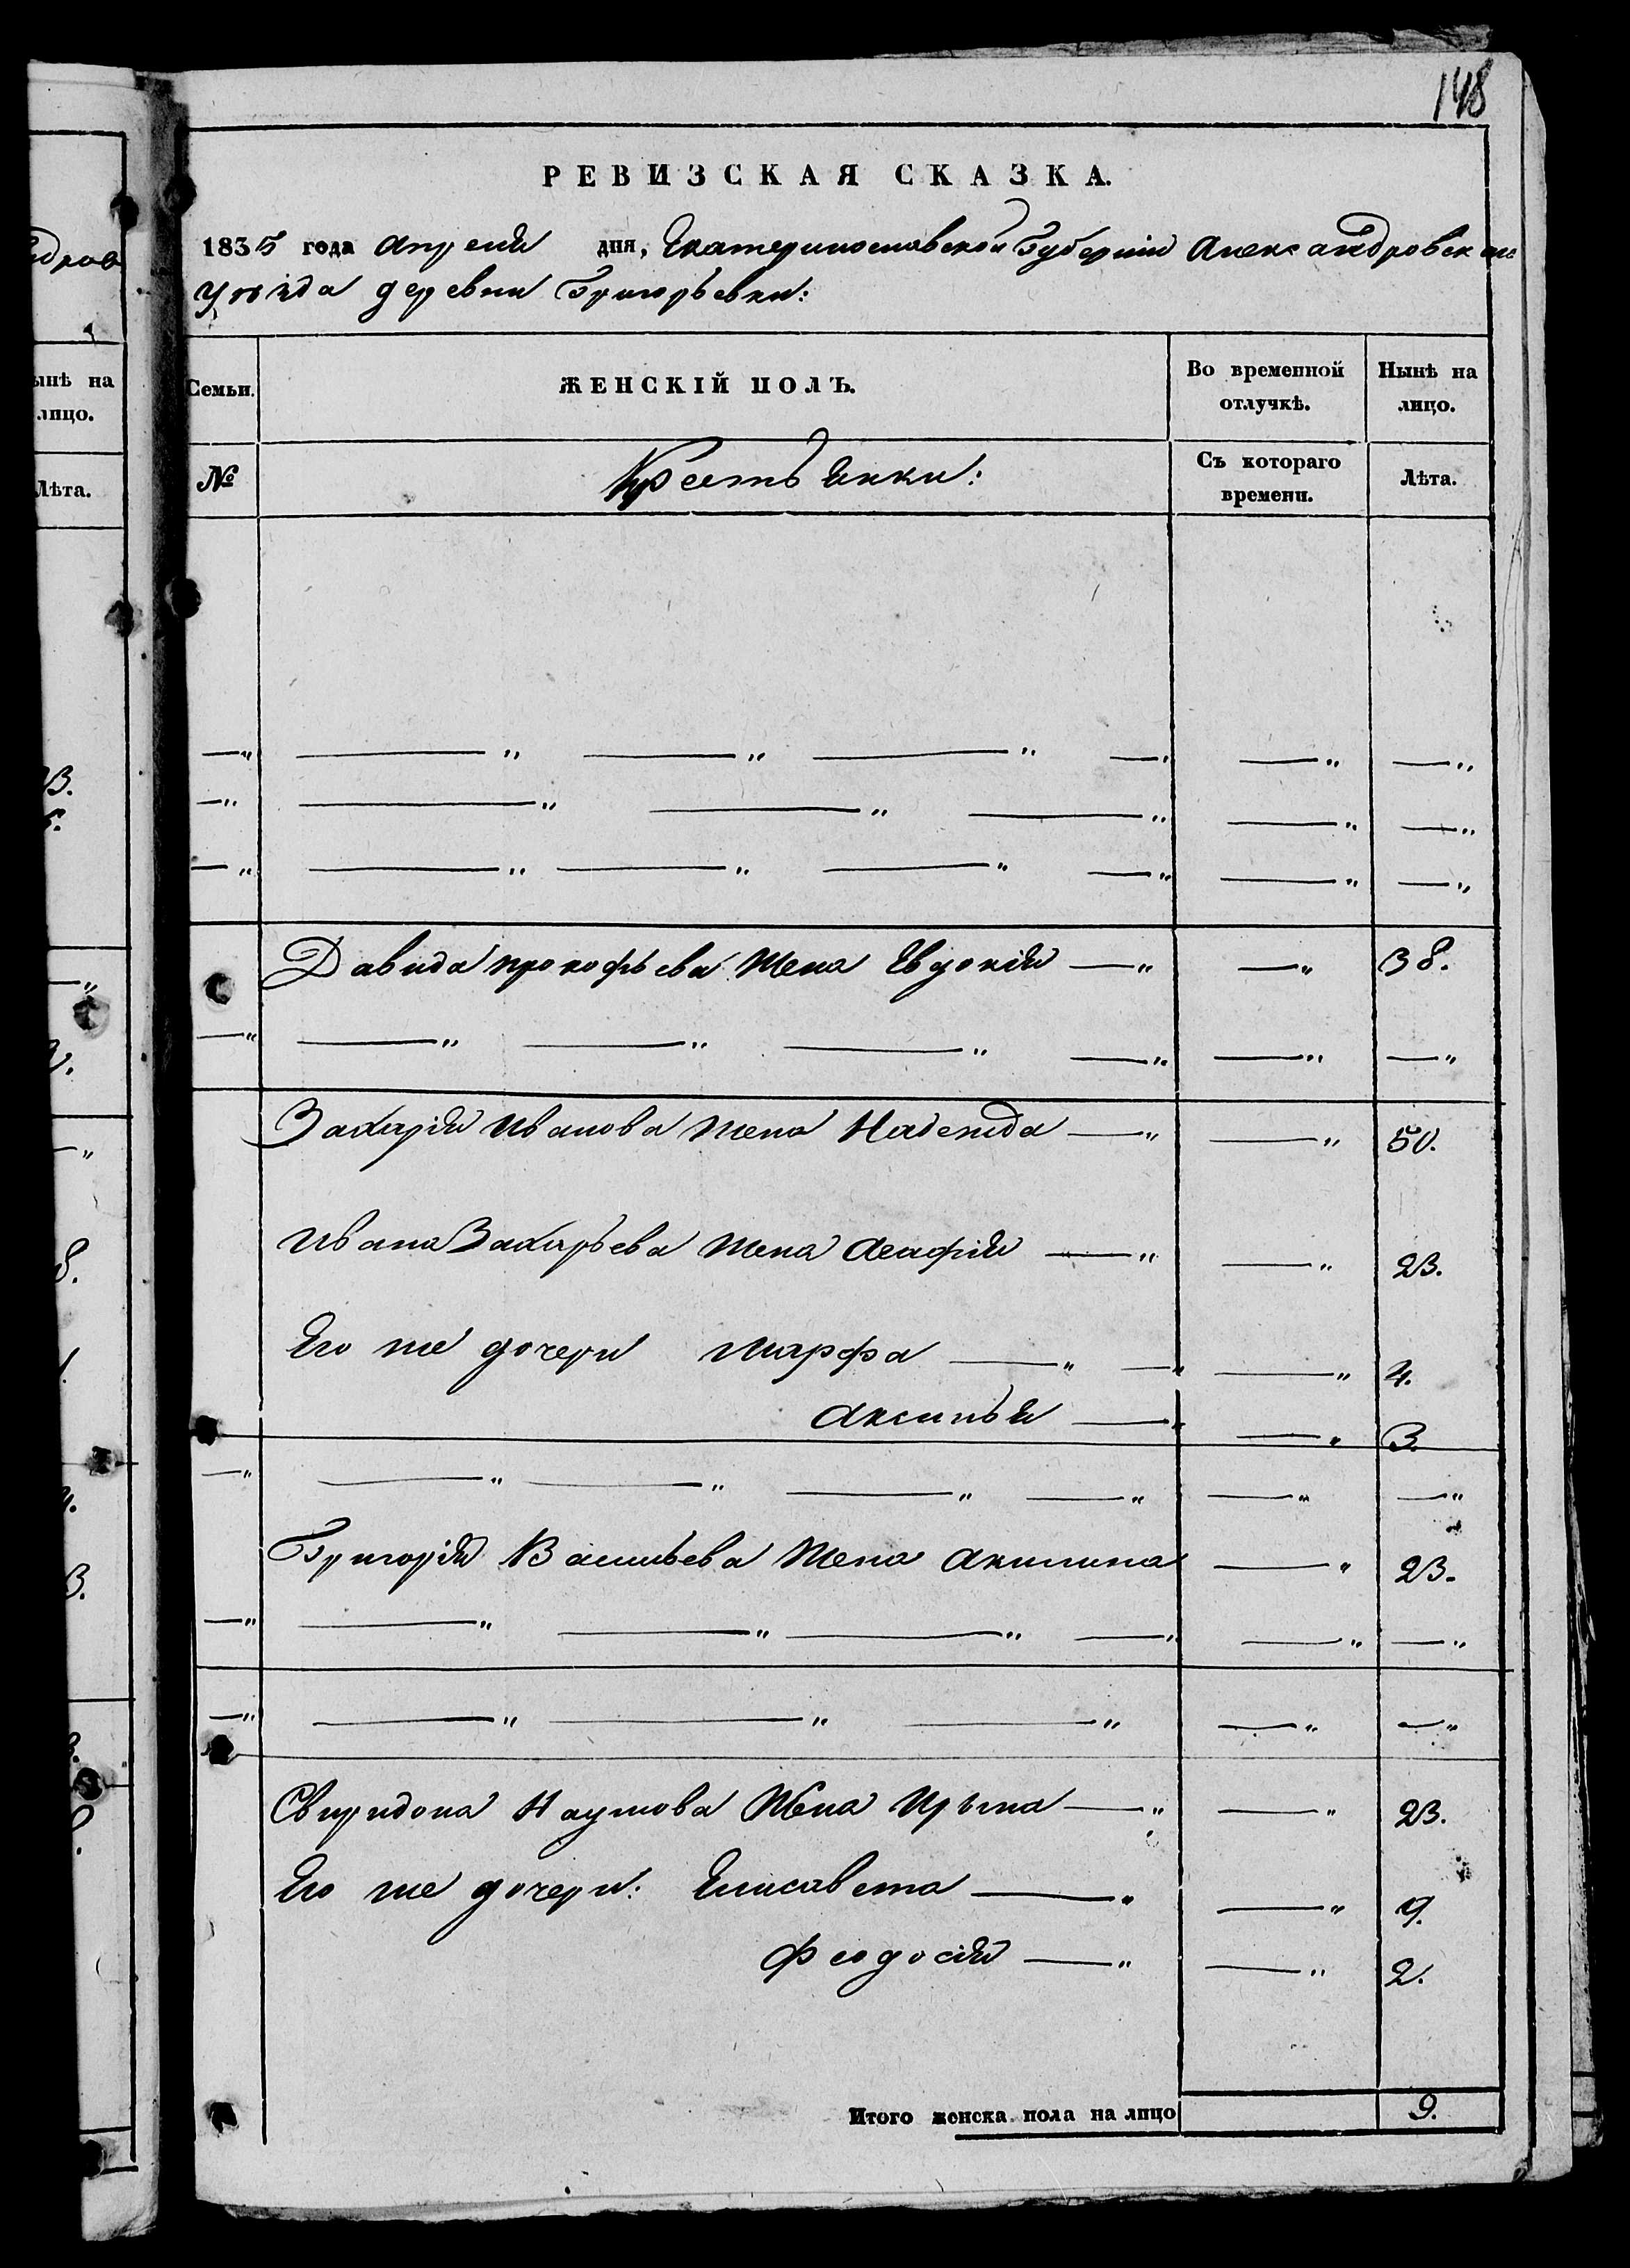 148
РЕВИЗСКАЯ СКАЗКА.
1835 года Апреля дня, Екатеринославской Губернии Александровскаго
уѣзда деревни Григорьевки:
Семьи. ЖЕНСКІЙ ПОЛЪ. Во временной отлучкѣ. Нынѣ на лицо.
№ Крестьянки: Съ котораго времени. Лѣта.
Давида Прокофьева жена Евдокия — " — " 38.
Захария Иванова жена Надежда — " — " 50.
Ивана Захарьева жена Агафия — " — " 23.
Его же дочери Марфа — " — " — " 4.
Аксинья — " — " 3.
Григория Васильева жена Акилина — " 23.
Свиридона Наумова жена Ирына — " — " 23.
Его же дочери: Елисавета — " — " 9.
Феодосия — " — " 2.
Итого женска пола на лицо 9.
ндров
ынѣ на
лицо.
Лѣта.